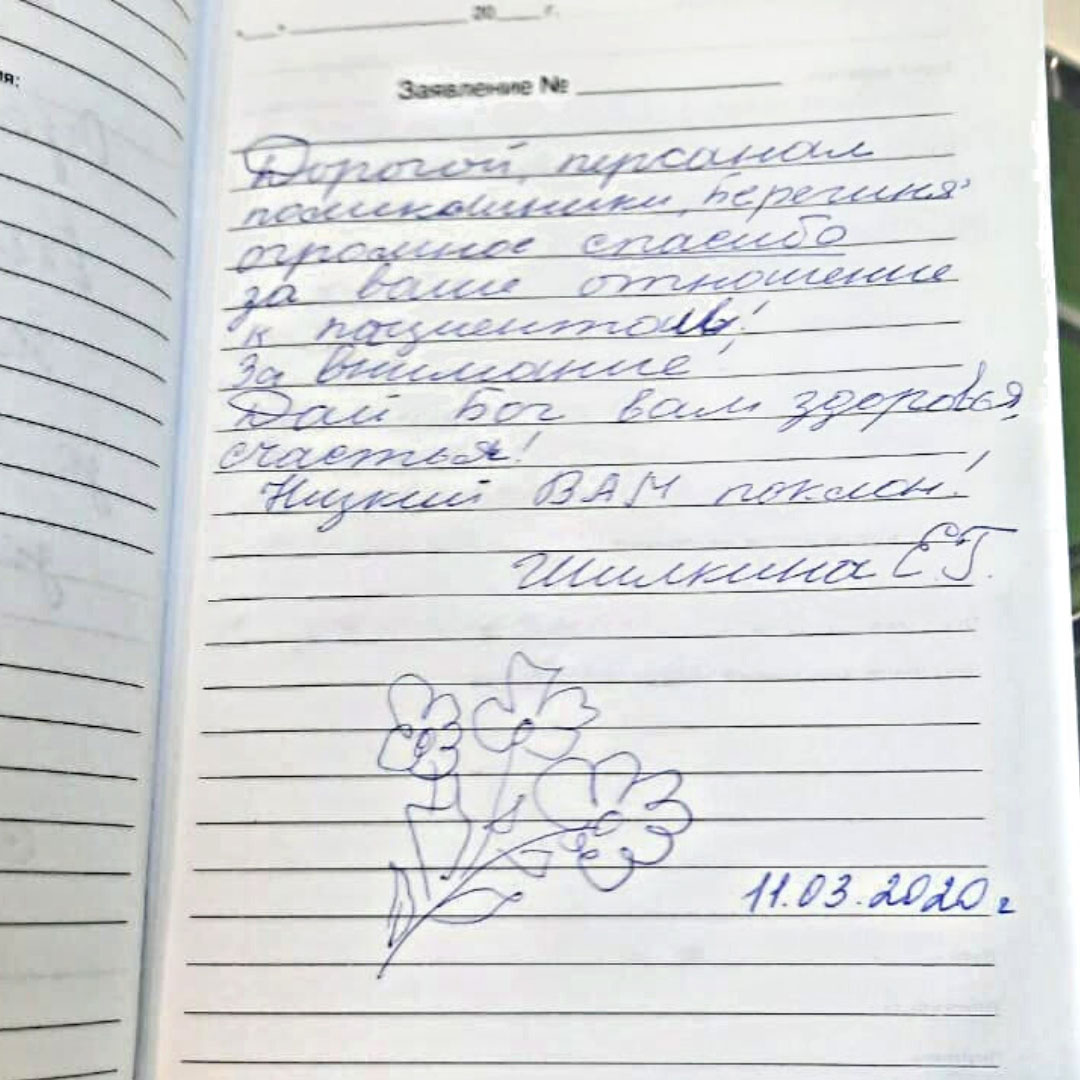 ия:
"___" ____________ 20____ г.
Заявление № ____________
Дорогой, персанал
поликлиники „Берегиня"
огромное спасибо
за ваше отношение
к пациентам!
За внимание!
Дай Бог вам здоровья,
счастья!
Низкий ВАМ поклон!
Шилкина Е.Г.
11.03.2020 г